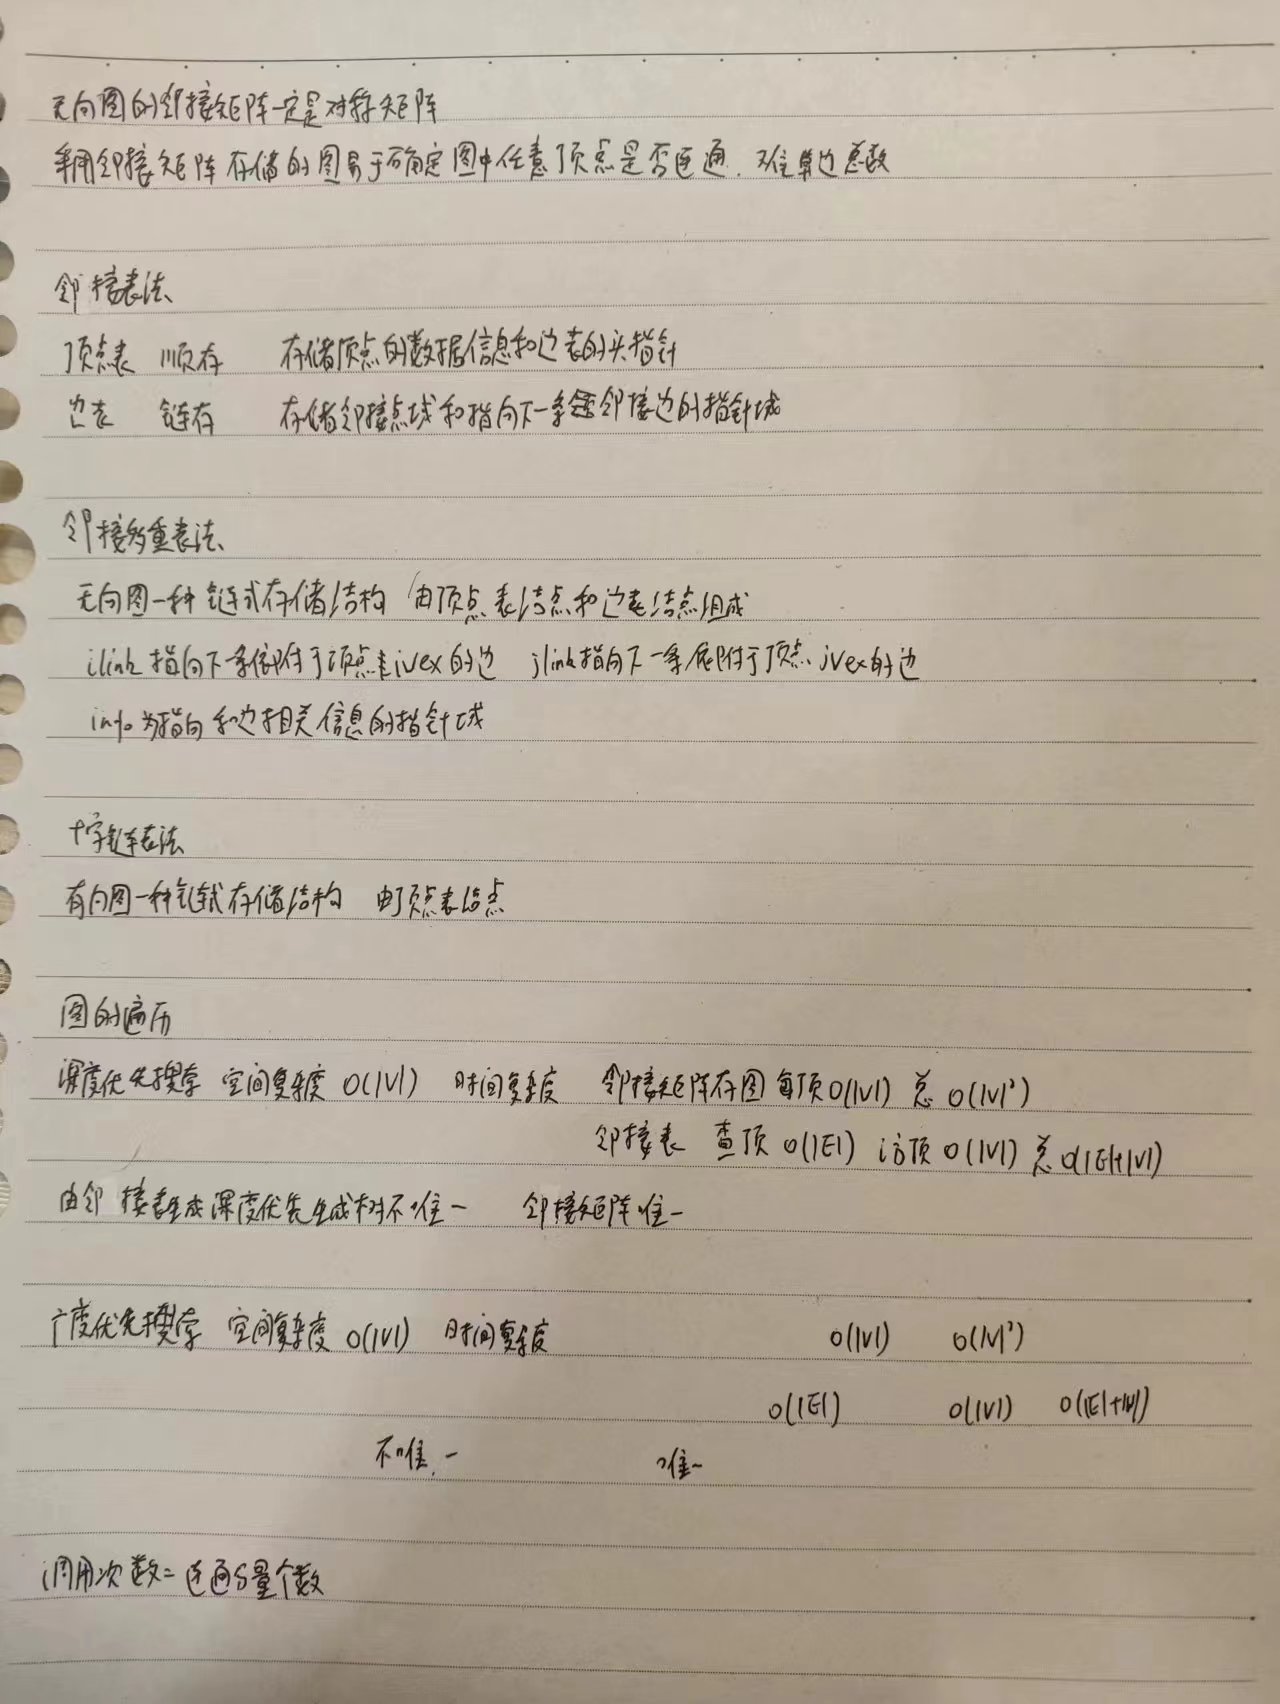 无向图的邻接矩阵一定是对称矩阵
采用邻接矩阵存储的图易于确定图中任意顶点是否连通. 难算边总数
邻接表法
顶点表 顺存 存储顶点的数据信息和边表的头指针
边表 链存 存储邻接点域和指向下一条邻接边的指针域
邻接多重表法
无向图一种链式存储结构 由顶点表结点和边表结点组成
ilink指向下一条依附于顶点ivex的边 jlink指向下一条依附于顶点jvex的边
info为指向和边相关信息的指针域
十字链表法
有向图一种链式存储结构 由顶点表结点
图的遍历
深度优先搜索 空间复杂度 O(|V|) 时间复杂度 邻接矩阵存图 每顶O(|V|) 总 O(|V|²)
邻接表 查顶 O(|E|) 访顶 O(|V|) 总 O(|E|+|V|)
由邻接表生成深度优先生成树不唯一 邻接矩阵唯一
广度优先搜索 空间复杂度 O(|V|) 时间复杂度 O(|V|) O(|V|²)
O(|E|) O(|V|) O(|E|+|V|)
不唯一 唯一
调用次数=连通分量个数